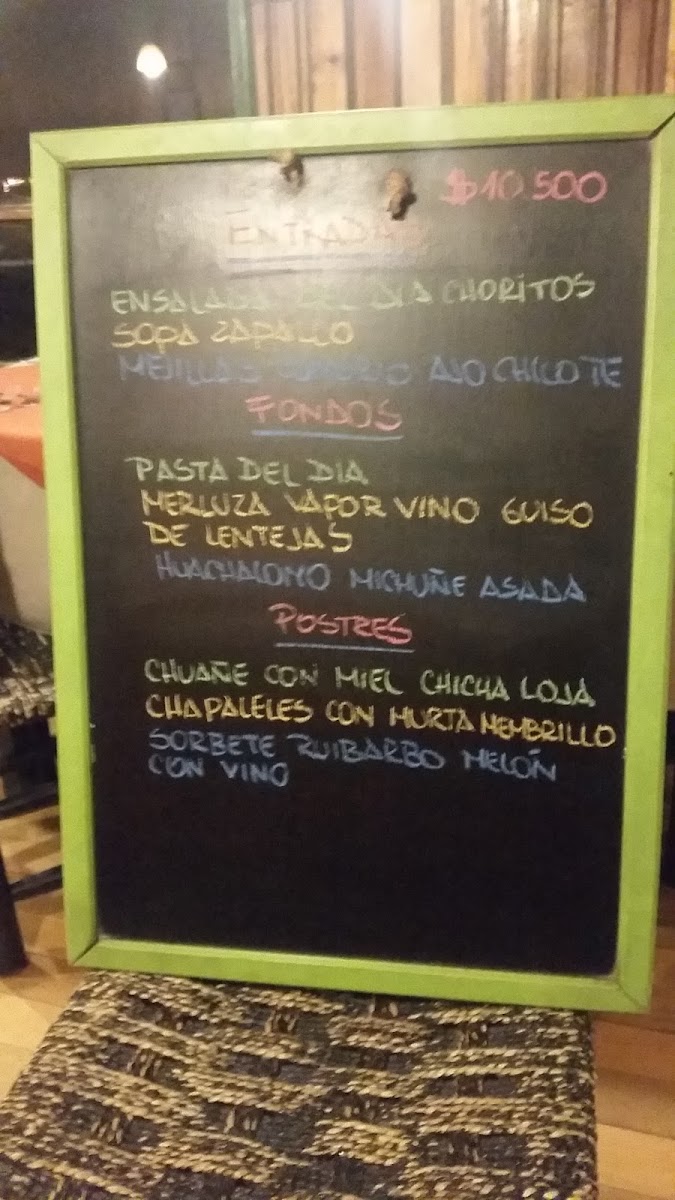 $10.500
ENTRADAS
ENSALADA DEL DIA CHORITOS
SOPA ZAPALLO
MEJILLAS AJO CHILOTE
FONDOS
PASTA DEL DIA
MERLUZA VAPOR VINO GUISO
DE LENTEJAS
HUACHALOMO MICHUÑE ASADA
POSTRES
CHUAÑE CON MIEL CHICHA LOJA
CHAPALELES CON MURTA MEMBRILLO
SORBETE RUIBARBO MELÓN
CON VINO